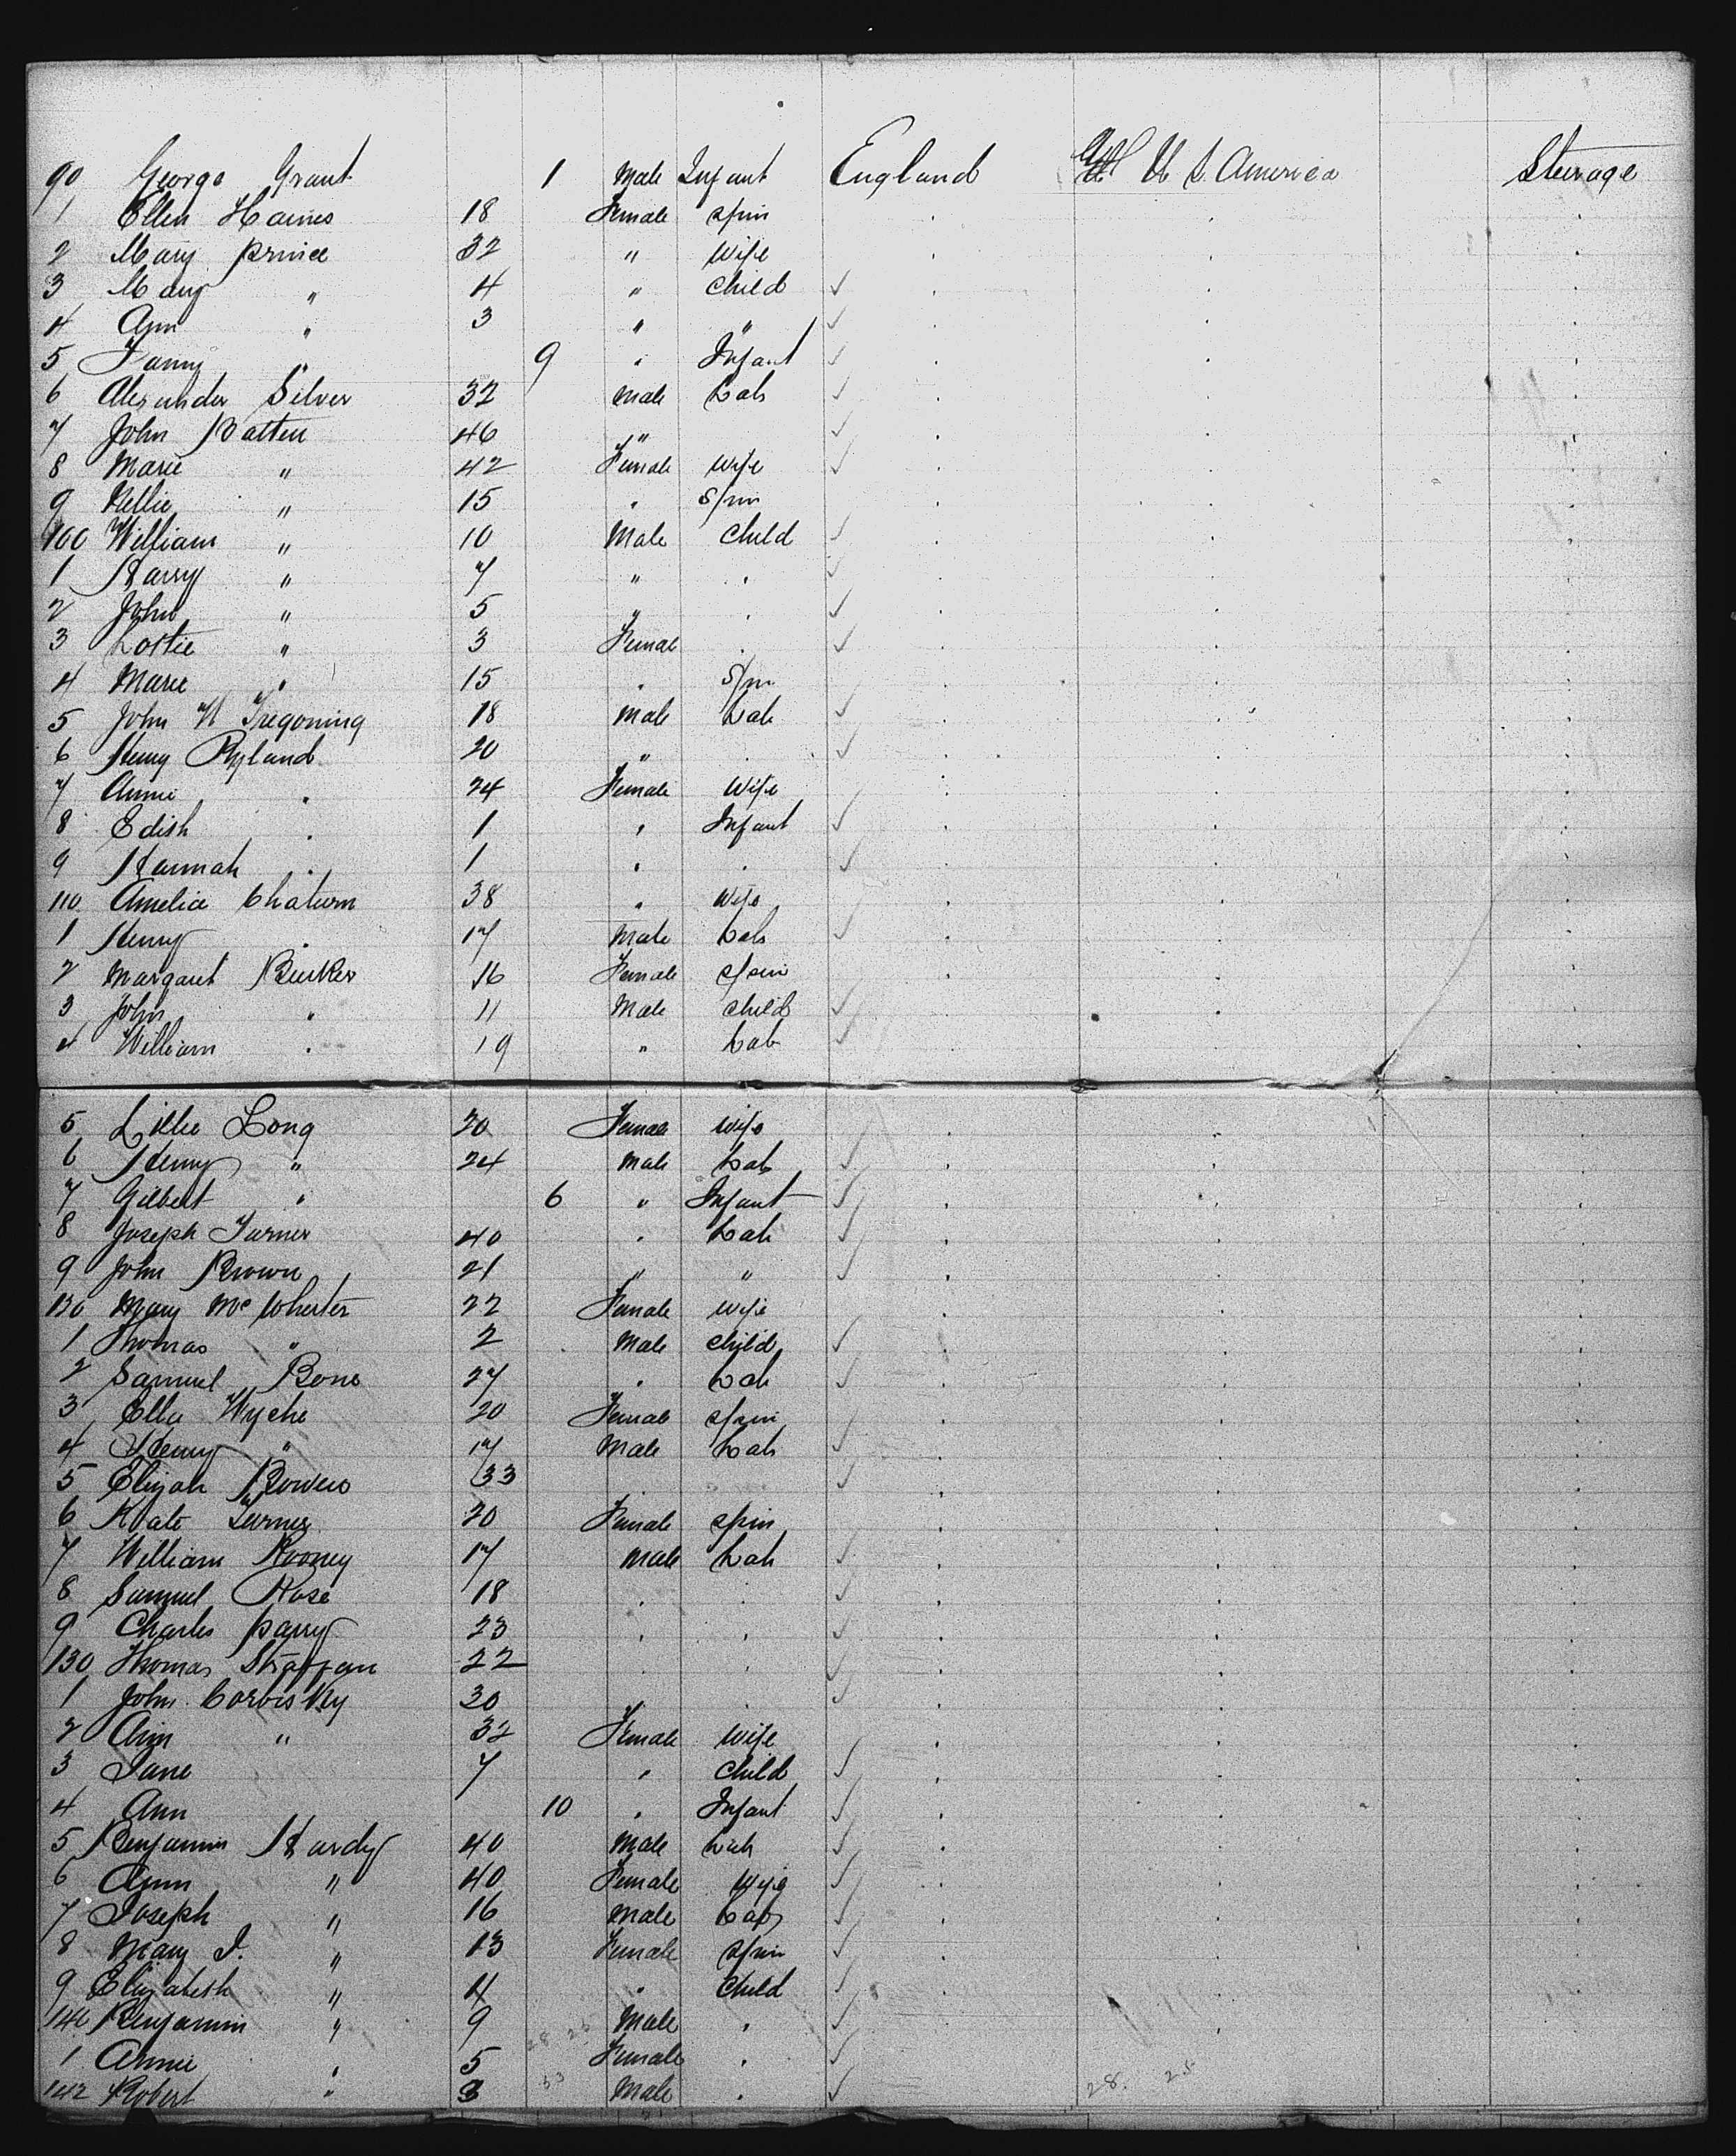 90 George Grant 1 Male Infant England U S America Steerage
1 Ellen Haines 18 Female Spin
2 Mary Prince 32 " Wife
3 Mary " 4 " Child ✓
4 Ann " 3 " " ✓
5 Fanny " 9 " Infant ✓
6 Alexander Silver 32 Male Lab ✓
7 John Batten 46 " ✓
8 Marie " 42 Female Wife ✓
9 Nellie " 15 " Spin
100 William " 10 Male Child ✓
1 Harry " 7 " " ✓
2 John " 5 " " ✓
3 Lottie " 3 Female " ✓
4 Marie " 15 " Spin
5 John W Tregoning 18 Male Lab ✓
6 Henry Ryland 20 " " ✓
7 Annie " 24 Female Wife
8 Edith " 1 " Infant ✓
9 Hannah " 1 " " ✓
110 Amelia 38 " Wife
1 Henry " 17 Male Lab ✓
2 Margaret 16 Female Spin
3 John " 11 Male Child ✓
4 William " 19 " Lab
5 Lillie Long 20 Female Wife
6 Henry " 24 Male Lab ✓
7 Gilbert " 6 " Infant ✓
8 Joseph Turner 40 " Lab ✓
9 John Brown 21 " " ✓
120 Mary McWherter 22 Female Wife
1 Thomas " 2 Male Child ✓
2 Samuel Bone 27 " Lab ✓
3 Ella Wyche 20 Female Spin
4 Henry " 17 Male Lab ✓
5 Elijah Bowers 33 ✓
6 Kate Turner 20 Female Spin
7 William Rooney 17 Male Lab ✓
8 Samuel Rose 18 " " ✓
9 Charles Parry 23 " " ✓
130 Thomas 22 " " ✓
1 John Corbiskley 30 " ✓
2 Ann " 32 Female Wife
3 Jane 7 " Child ✓
4 Ann 10 " Infant ✓
5 Benjamin Hardy 40 Male Lab ✓
6 Ann " 40 Female Wife ✓
7 Joseph " 16 Male Lab ✓
8 Mary J. " 13 Female Spin ✓
9 Elizabeth " 11 " Child ✓
140 Benjamin " 9 Male " ✓
1 Annie " 5 Female " ✓
142 Robert " 3 Male " ✓
28. 25